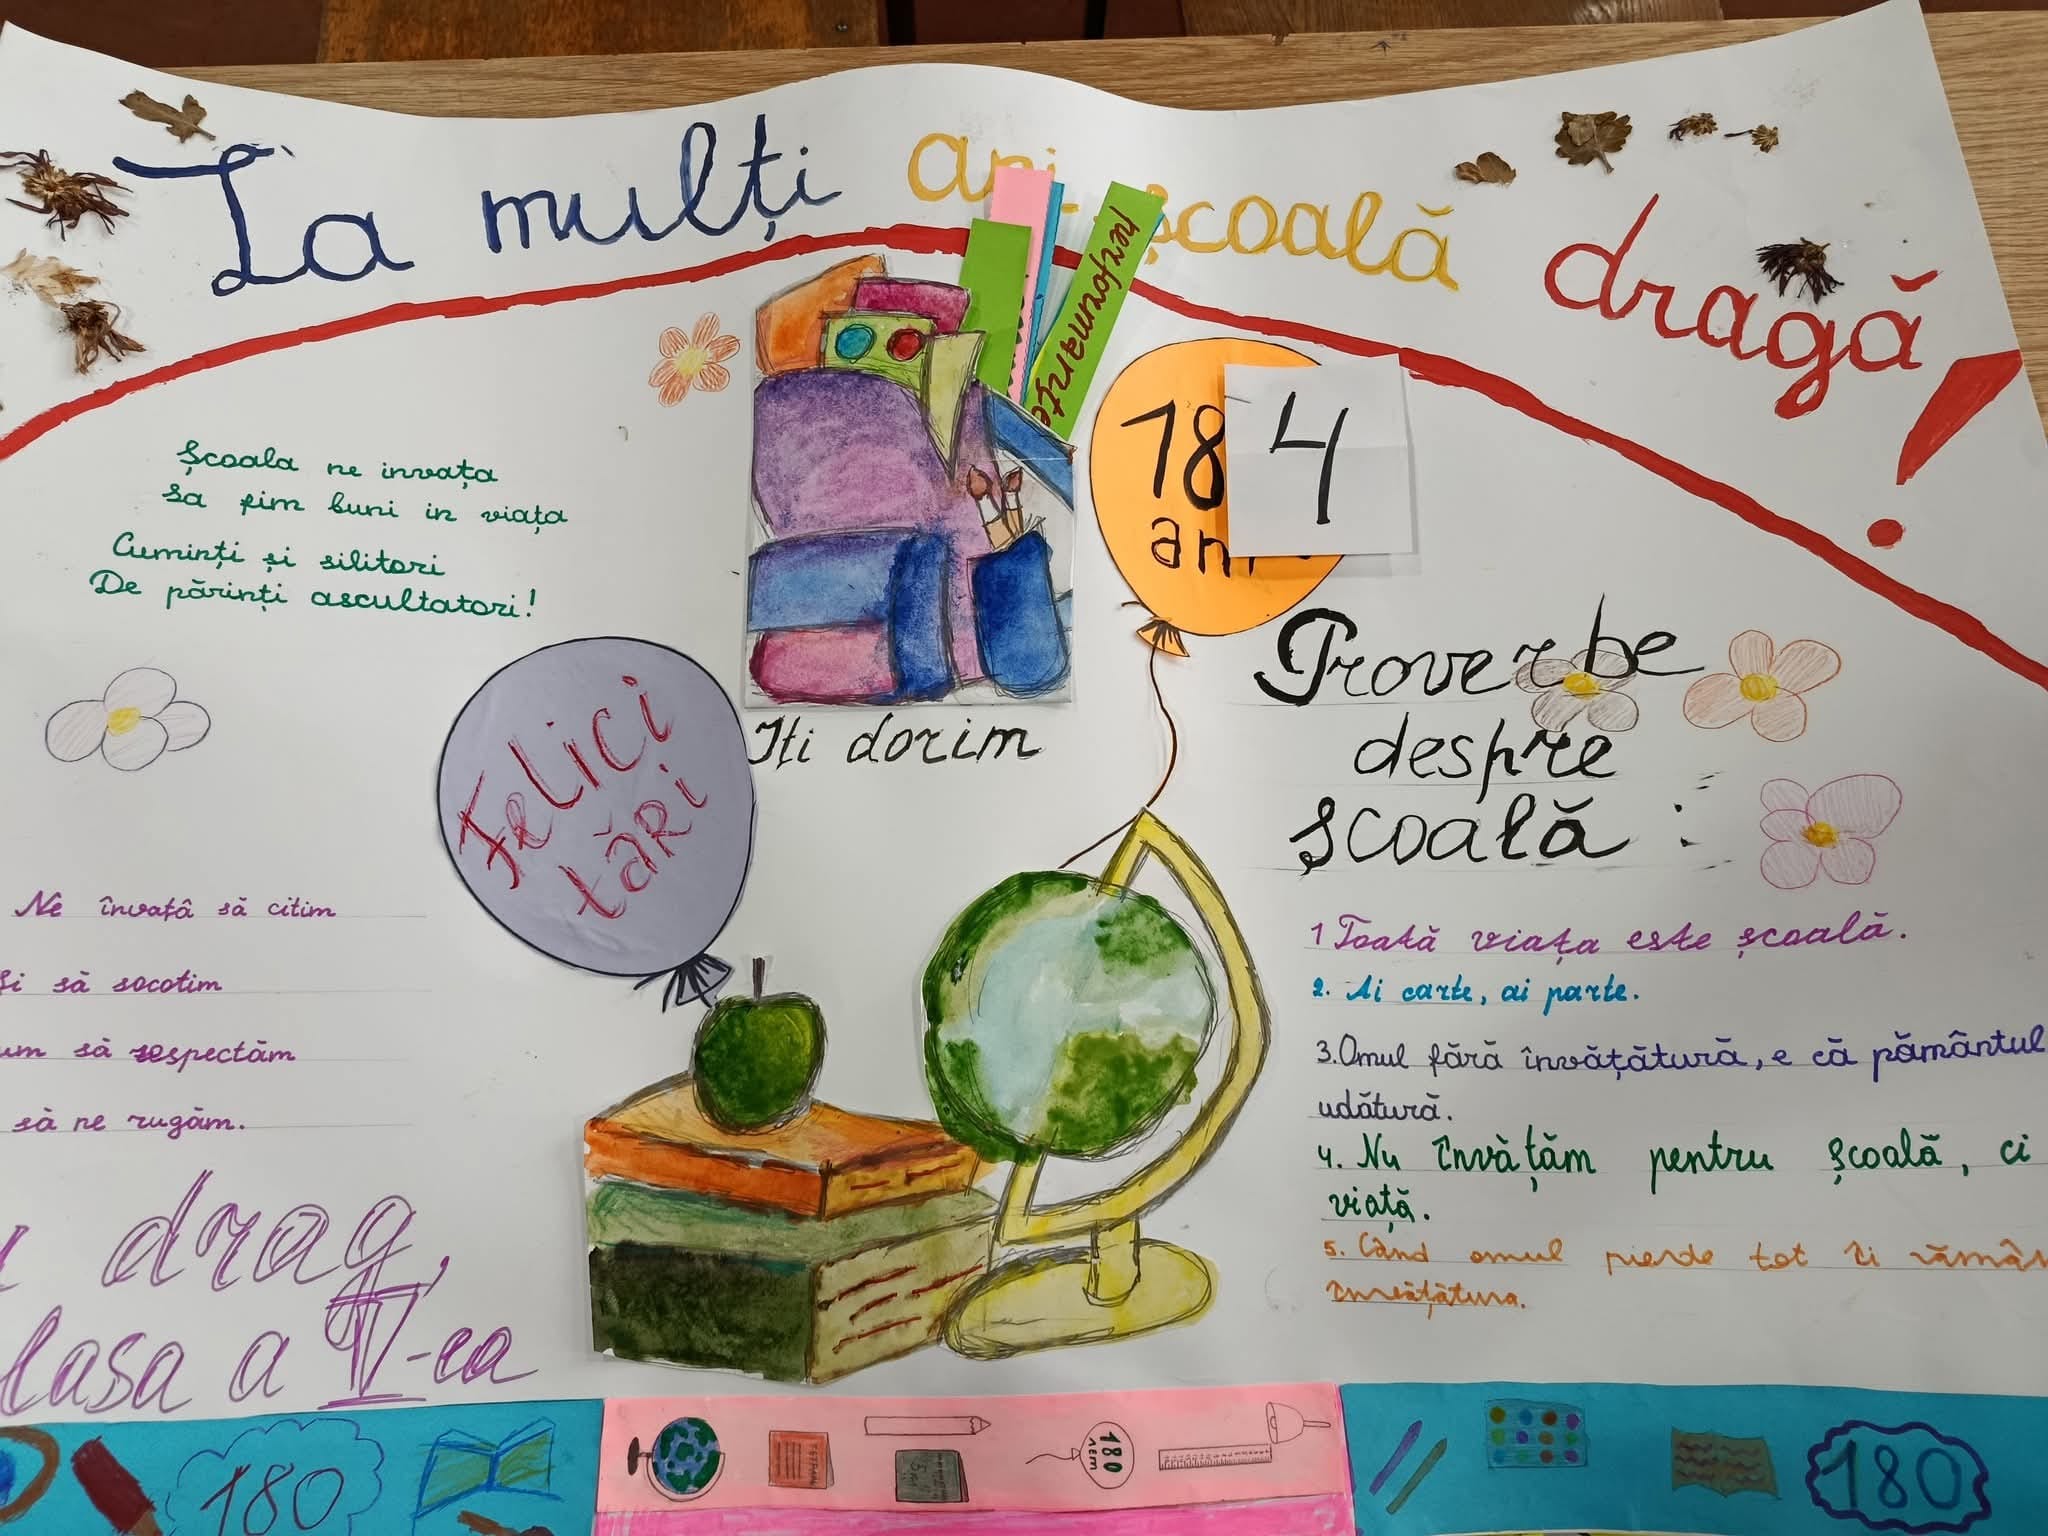 La mulți ani școală dragă!
performanțe
Școala ne invața
Sa fim buni in viața
Cuminți și silitori
De părinți ascultatori!
184
ani
Felici
tări
Iti dorim
Proverbe
despre
școală :
Ne învață să citim
Și să socotim
să respectăm
să ne rugăm.
drag,
clasa a V-ea
1 Toată viața este școală.
2. Ai carte, ai parte.
3. Omul fără învățătură, e că pământul
udătură.
4. Nu învățăm pentru școală, ci
viață.
5. Când omul pierde tot îi
învățătura.
180
180
лет
180